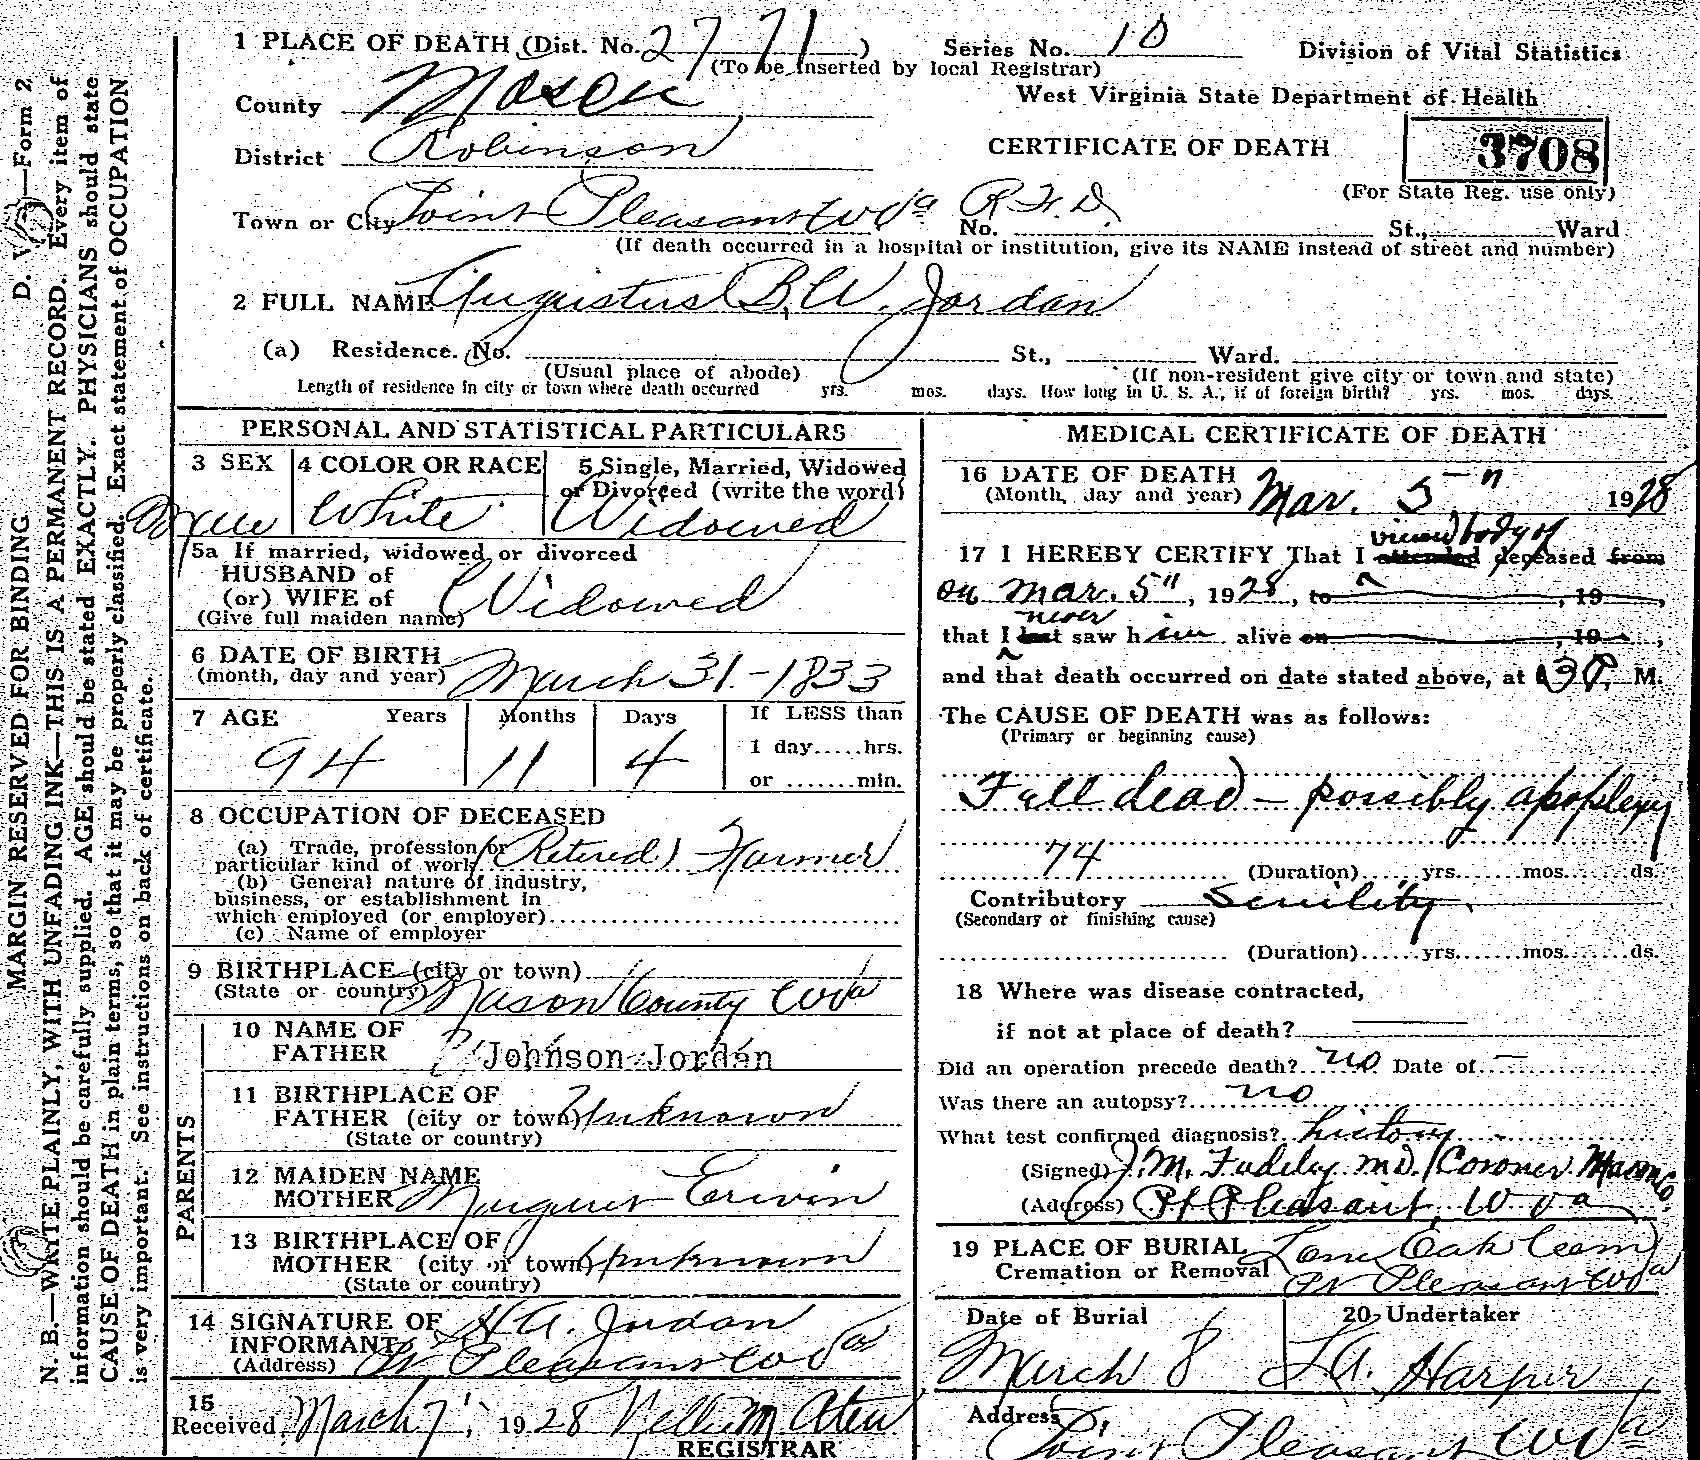 1 PLACE OF DEATH (Dist. No. 2771) Series No. 10 Division of Vital Statistics
(To be inserted by local Registrar)
West Virginia State Department of Health
County Mason
District Robinson
CERTIFICATE OF DEATH 3708
(For State Reg. use only)
Town or City Point Pleasant W Va R.F.D. No. St., Ward
(If death occurred in a hospital or institution, give its NAME instead of street and number)
2 FULL NAME Augustus B.W. Jordan
(a) Residence. No. St., Ward.
(Usual place of abode) (If non-resident give city or town and state)
Length of residence in city or town where death occurred yrs. mos. days. How long in U. S. A., if of foreign birth? yrs. mos. days.
MARGIN RESERVED FOR BINDING D. V. —Form 2
N. B.—WRITE PLAINLY, WITH UNFADING INK—THIS IS A PERMANENT RECORD. Every item of
information should be carefully supplied. AGE should be stated EXACTLY. PHYSICIANS should state
CAUSE OF DEATH in plain terms, so that it may be properly classified. Exact statement of OCCUPATION
is very important. See instructions on back of certificate.
PERSONAL AND STATISTICAL PARTICULARS
3 SEX 4 COLOR OR RACE 5 Single, Married, Widowed
or Divorced (write the word)
Male White Widowed
5a If married, widowed, or divorced
HUSBAND of
(or) WIFE of Widowed
(Give full maiden name)
6 DATE OF BIRTH
(month, day and year) March 31-1833
7 AGE Years Months Days If LESS than
94 11 4 1 day.....hrs.
or .......min.
8 OCCUPATION OF DECEASED
(a) Trade, profession or
particular kind of work (Retired) Farmer
(b) General nature of industry,
business, or establishment in
which employed (or employer)
(c) Name of employer
9 BIRTHPLACE (city or town)
(State or country) Mason County W Va
PARENTS
10 NAME OF
FATHER Johnson Jordan
11 BIRTHPLACE OF
FATHER (city or town) Unknown
(State or country)
12 MAIDEN NAME
MOTHER Margaret Erwin
13 BIRTHPLACE OF
MOTHER (city or town) Unknown
(State or country)
14 SIGNATURE OF
INFORMANT H A. Jordan
(Address) Pt Pleasant W Va
15
Received March 7, 1928
REGISTRAR
MEDICAL CERTIFICATE OF DEATH
16 DATE OF DEATH
(Month, day and year) Mar. 5" 1928
viewed body of
17 I HEREBY CERTIFY That I attended deceased from
on Mar. 5", 1928, to , 19 ,
never
that I last saw him alive on , 19 ,
and that death occurred on date stated above, at 30 P. M.
The CAUSE OF DEATH was as follows:
(Primary or beginning cause)
Fell dead - possibly apoplexy
74
(Duration) yrs. mos. ds.
Contributory Senility.
(Secondary or finishing cause)
(Duration) yrs. mos. ds.
18 Where was disease contracted,
if not at place of death?
Did an operation precede death? no Date of —
Was there an autopsy? no
What test confirmed diagnosis? history
(Signed) J.M. M.D. Coroner Mason Co.
(Address) Pt Pleasant, W Va
19 PLACE OF BURIAL Lone Oak Cem
Cremation or Removal Pt Pleasant W Va
Date of Burial 20 Undertaker
March 8 Harper
Address
Point Pleasant W Va